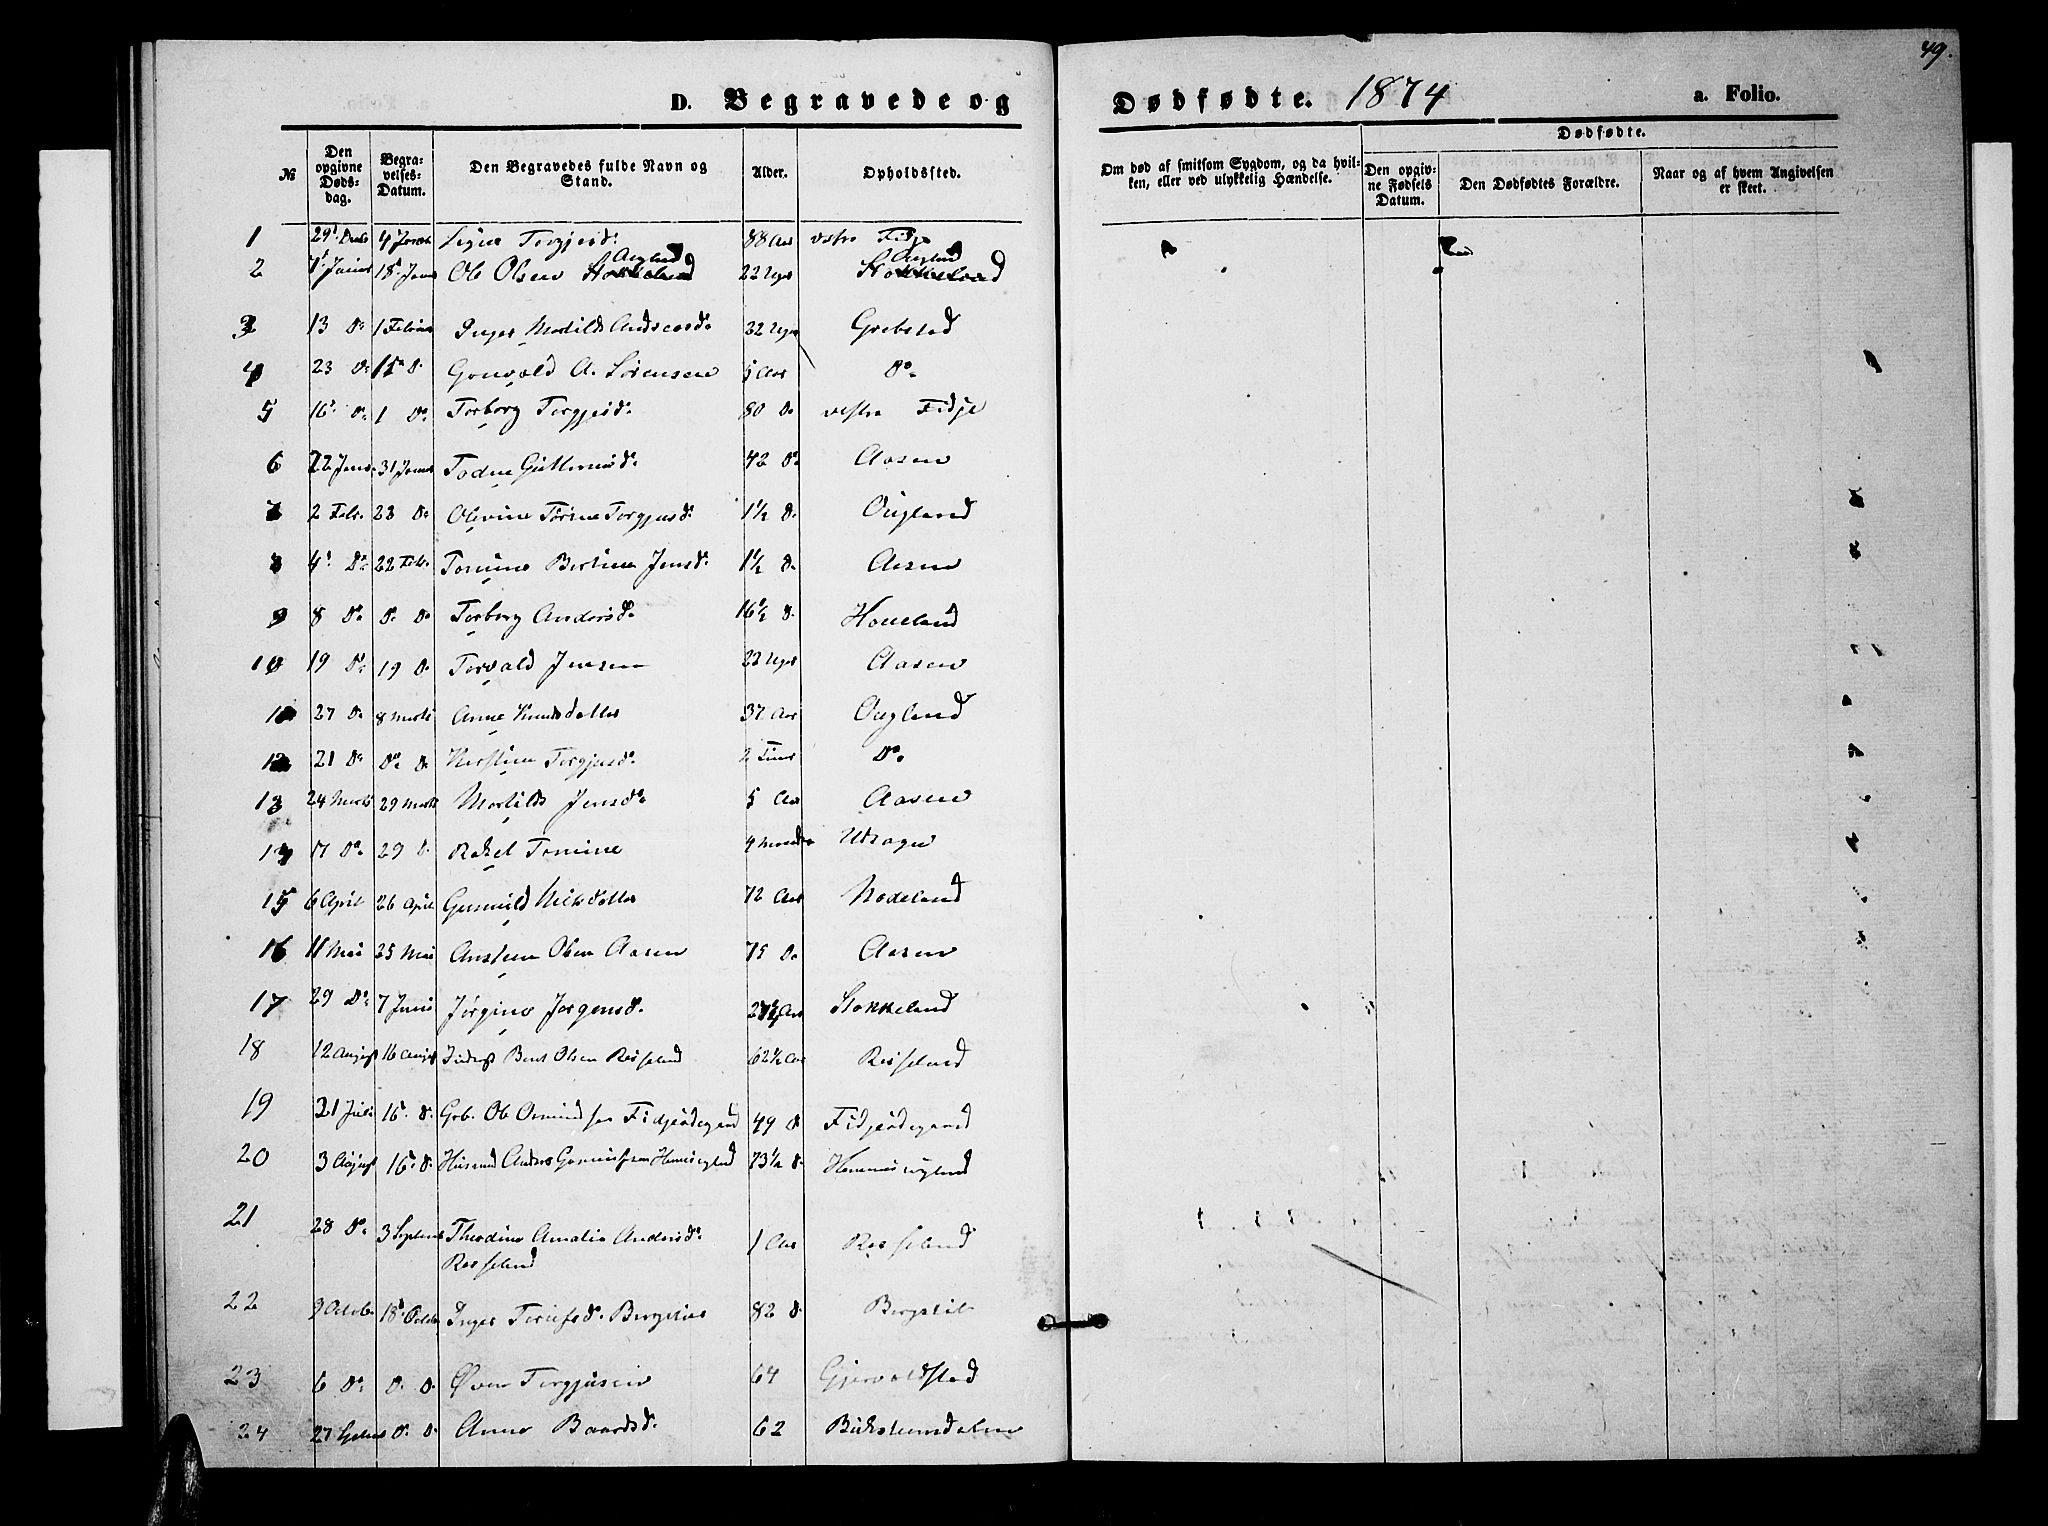 49.
D. Begravede og Dødfødte. 1874 a. Folio.
Dødfødte.
№ Den opgivne Døds-dag. Begra-velses-Datum. Den Begravedes fulde Navn og Stand. Alder. Opholdssted. Om død af smitsom Sygdom, og da hvil-ken, eller ved ulykkelig Hændelse. Den opgiv-ne Fødsels Datum. Den Dødfødtes Forældre. Naar og af hvem Angivelsen er skeet.
1 29 4 Torgjesd. 88 Aar vestre Fidje
Augland Augland
2 18 Ole Olsen Stokkeland 22 Uger Stokkeland
3 13 Do 1 Februar Inger Matilde Andersd. 22 Uger Grebstad
4 23 Do Gunvald A. Sørensen 5 Aar Do
5 16 Do 1 Do Torborg Torgjesd. 80 Do vestre Fidje
6 22 Janr 31 Januar Todne Guttormsd. 42 Do Aasen
7 2 Febr. 23 Do Olevine Torine Torgjusd. 1½ Do Ougland
8 4 Do 22 Febr. Tomine Bertine Jensd. 1½ Do Aasen
9 8 Do Do Do Torborg Andersd. 16½ Do Houeland
10 19 Do 19 Do Torvald Jensen 22 Uger Aasen
11 27 Do 8 Marts Anne Knudsdatter 37 Aar Ougland
12 21 Do Do Do Kirstine Torgjusd. 2 Timer Do
13 24 Marts 29 Marts Matilde Jensd. 5 Aar Aasen
14 17 Do 29 Do Rakel Tomine 4 Maaneder
15 6 April 26 April Gunnild Nilsdatter 72 Aar Nodeland
16 11 Mai 25 Mai Ansten Olsen Aasen 75 Do Aasen
17 29 Do 7 Juni Jørgine Jørgensd. Aar Stokkeland
18 12 August 16 August Inderst Bent Olsen Rosseland 62½ Aar Rosseland
19 21 Juli 16 Do Grb. Ole Osmundsen Fidjeødegaard 49 Do Fidjeødegaard
20 3 August 16 Do Husmand Anders Gunnufsen Hemmingland 73½ Do Hemmingland
21 28 Do 3 Septemb Theodine Amalie Andersd. 1 Aar Rosseland
Rosseland
22 9 Octob. 18 Octob. Inger Torjusd. Bergstøl 82 Do Bergstøl
23 6 Do Do Do Øven Torgjusen 64 Gjervoldstad
24 27 Do Do Anne Baardsd. 62 Bukstuendalen